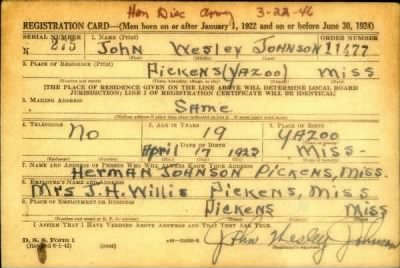 Hon Disc Army 3-22-46
REGISTRATION CARD—(Men born on or after January 1, 1922 and on or before June 30, 1924)
SERIAL NUMBER 1. NAME (Print) ORDER NUMBER
John Wesley Johnson 11477
(First) (Middle) (Last)
2. PLACE OF RESIDENCE (Print)
Pickens (Yazoo) Miss
[THE PLACE OF RESIDENCE GIVEN ON THE LINE ABOVE WILL DETERMINE LOCAL BOARD
JURISDICTION; LINE 2 OF REGISTRATION CERTIFICATE WILL BE IDENTICAL]
3. MAILING ADDRESS
Same
4. TELEPHONE 5. AGE IN YEARS 6. PLACE OF BIRTH
No 19 Yazoo
April 17 1923 Miss.
7. NAME AND ADDRESS OF PERSON WHO WILL ALWAYS KNOW YOUR ADDRESS
Herman Johnson Pickens, Miss.
8. EMPLOYER'S NAME AND ADDRESS
Mrs J.H. Willis Pickens, Miss
9. PLACE OF EMPLOYMENT OR BUSINESS
Pickens Miss
I AFFIRM THAT I HAVE VERIFIED ABOVE ANSWERS AND THAT THEY ARE TRUE.
D. S. S. Form 1
(Revised 6-1-42)
John Wesley Johnson